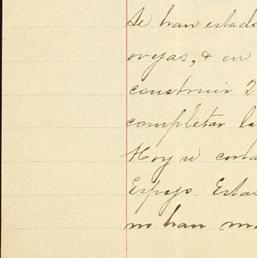 se han estado
ovejas, & en
construir 2
completar la
Hoy se
Espejo. Esta
no han